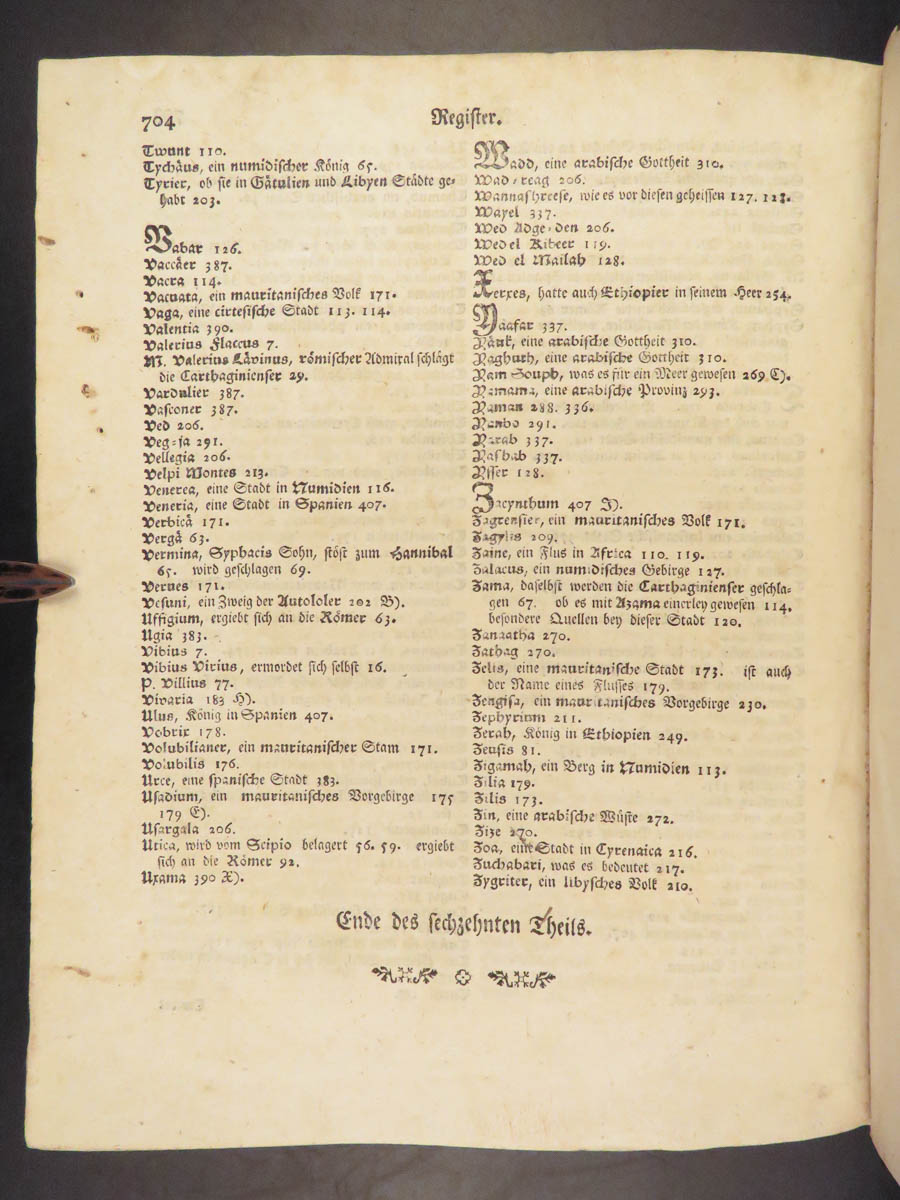 704
Register.
Twunt 110.
Tychäus, ein numidischer König 65.
Tyrier, ob sie in Gätulien und Libyen Städte ge-
habt 203.
Vabar 126.
Vaccäer 387.
Vacra 114.
Vacuata, ein mauritanisches Volk 171.
Vaga, eine cirtesische Stadt 113. 114.
Valentia 390.
Valerius Flaccus 7.
M. Valerius Lävinus, römischer Admiral schlägt
die Carthaginienser 29.
Vardulier 387.
Vasconer 387.
Ved 206.
Veg-ja 291.
Vellegia 206.
Velpi Montes 213.
Venerea, eine Stadt in Numidien 116.
Veneria, eine Stadt in Spanien 407.
Verbicä 171.
Vergä 63.
Vermina, Syphacis Sohn, stöst zum Hannibal
65. wird geschlagen 69.
Verues 171.
Vesuni, ein Zweig der Autololer 202 B).
Uffigium, ergiebt sich an die Römer 63.
Ugia 383.
Vibius 7.
Vibius Virius, ermordet sich selbst 16.
P. Villius 77.
Vivaria 183 H).
Ulus, König in Spanien 407.
Vobrix 178.
Volubilianer, ein mauritanischer Stam 171.
Volubilis 176.
Urce, eine spanische Stadt 383.
Usadium, ein mauritanisches Vorgebirge 175
179 E).
Usargala 206.
Utica, wird vom Scipio belagert 56. 59. ergiebt
sich an die Römer 92.
Uxama 390 X).
Wadd, eine arabische Gottheit 310.
Wad-reag 206.
Wannashreese, wie es vor diesen geheissen 127. 128.
Wayel 337.
Wed Adge-den 206.
Wed el Kibeer 119.
Wed el Mailah 128.
Xerxes, hatte auch Ethiopier in seinem Heer 254.
Yaafar 337.
Yäuk, eine arabische Gottheit 310.
Yaghuth, eine arabische Gottheit 310.
Yam Souph, was es für ein Meer gewesen 269 C).
Yamama, eine arabische Provinz 293.
Yaman 288. 336.
Yanbo 291.
Yarab 337.
Yashab 337.
Ysser 128.
Zacynthum 407 J).
Zagrensier, ein mauritanisches Volk 171.
Zagylis 209.
Zaine, ein Flus in Africa 110. 119.
Zalacus, ein numidisches Gebirge 127.
Zama, daselbst werden die Carthaginienser geschla-
gen 67. ob es mit Azama einerley gewesen 114.
besondere Quellen bey dieser Stadt 120.
Zanaatha 270.
Zathag 270.
Zelis, eine mauritanische Stadt 173. ist auch
der Name eines Flusses 179.
Zengisa, ein mauritanisches Vorgebirge 230.
Zephyrium 211.
Zerah, König in Ethiopien 249.
Zeusis 81.
Zigamah, ein Berg in Numidien 113.
Zilia 179.
Zilis 173.
Zin, eine arabische Wüste 272.
Zize 270.
Zoa, eine Stadt in Cyrenaica 216.
Zuchabari, was es bedeutet 217.
Zygriter, ein libysches Volk 210.
Ende des sechzehnten Theils.